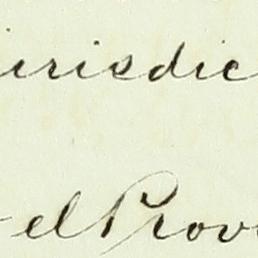 urisdic
el Prov